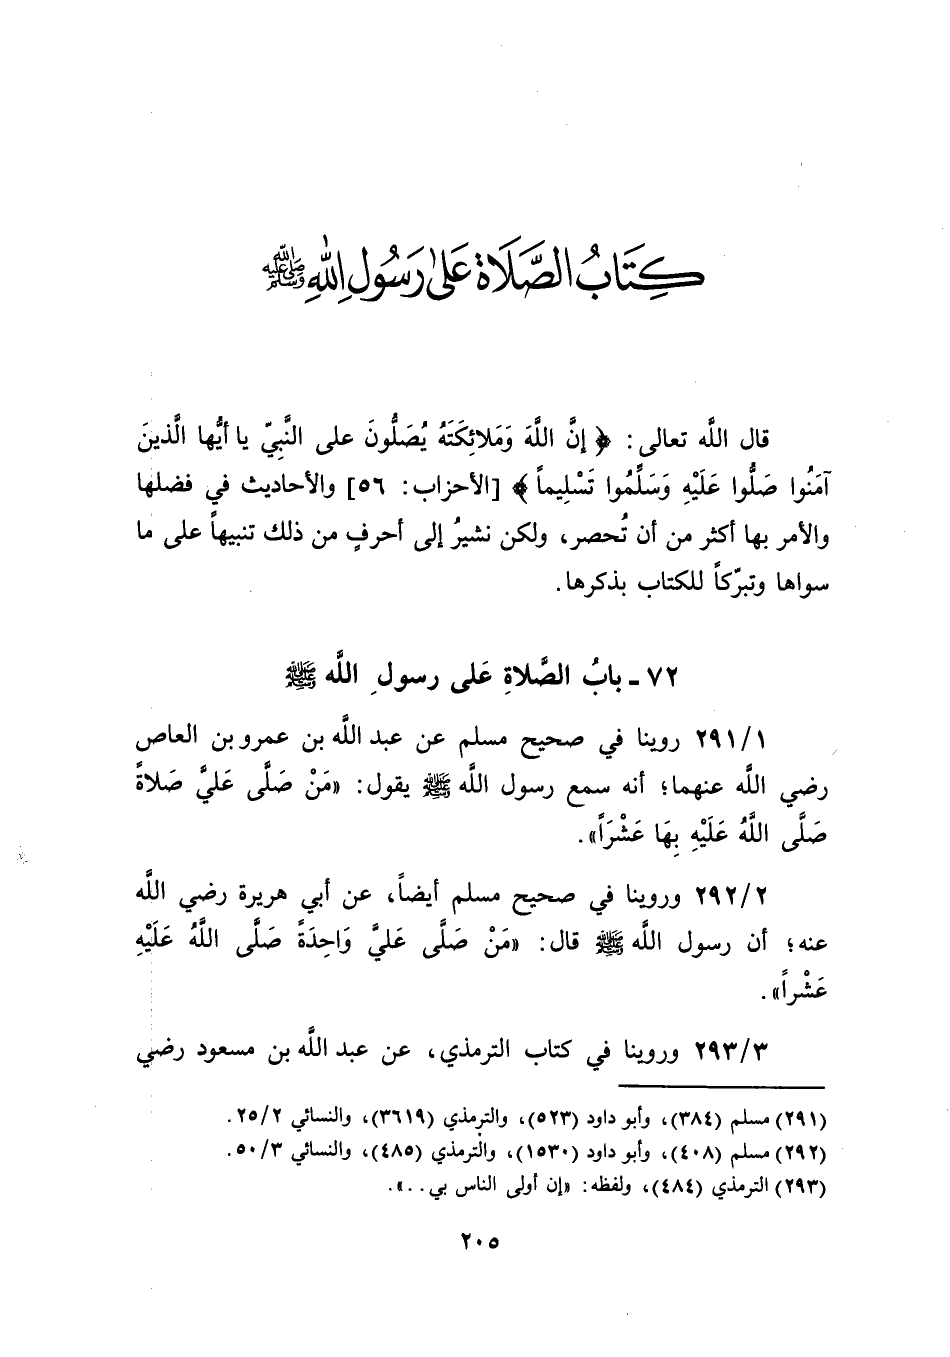 كِتَابُ الصَّلَاة عَلىٰ رَسُولِ اللّٰهِ ﷺ
قال اللَّه تعالى: ﴿ إنَّ اللَّهَ وَمَلائِكَتَهُ يُصَلُّونَ على النَّبِيّ يا أيُّها الَّذينَ
آمَنُوا صَلُّوا عَلَيْهِ وَسَلِّمُوا تَسْلِيماً ﴾ [الأحزاب: ٥٦] والأحاديث في فضلها
والأمر بها أكثر من أن تُحصر، ولكن نشيرُ إلى أحرفٍ من ذلك تنبيهاً على ما
سواها وتبرّكاً للكتاب بذكرها.
٧٢ ـ بابُ الصَّلاةِ عَلى رسولِ اللَّه ﷺ
٢٩١/١ روينا في صحيح مسلم عن عبد اللَّه بن عمرو بن العاص
رضي اللَّه عنهما؛ أنه سمع رسول اللَّه ﷺ يقول: «مَنْ صَلَّى عَليَّ صَلاةً
صَلَّى اللَّهُ عَلَيْهِ بِهَا عَشْرَاً».
٢٩٢/٢ وروينا في صحيح مسلم أيضاً، عن أبي هريرة رضي اللَّه
عنه؛ أن رسول اللَّه ﷺ قال: «مَنْ صَلَّى عَليَّ وَاحِدَةً صَلَّى اللَّهُ عَلَيْهِ
عَشْراً».
٢٩٣/٣ وروينا في كتاب الترمذي، عن عبد اللَّه بن مسعود رضي
(٢٩١) مسلم (٣٨٤)، وأبو داود (٥٢٣)، والترمذي (٣٦١٩)، والنسائي ٢٥/٢.
(٢٩٢) مسلم (٤٠٨)، وأبو داود (١٥٣٠)، والترمذي (٤٨٥)، والنسائي ٥٠/٣.
(٢٩٣) الترمذي (٤٨٤)، ولفظه: «إن أولى الناس بي..».
٢٠٥